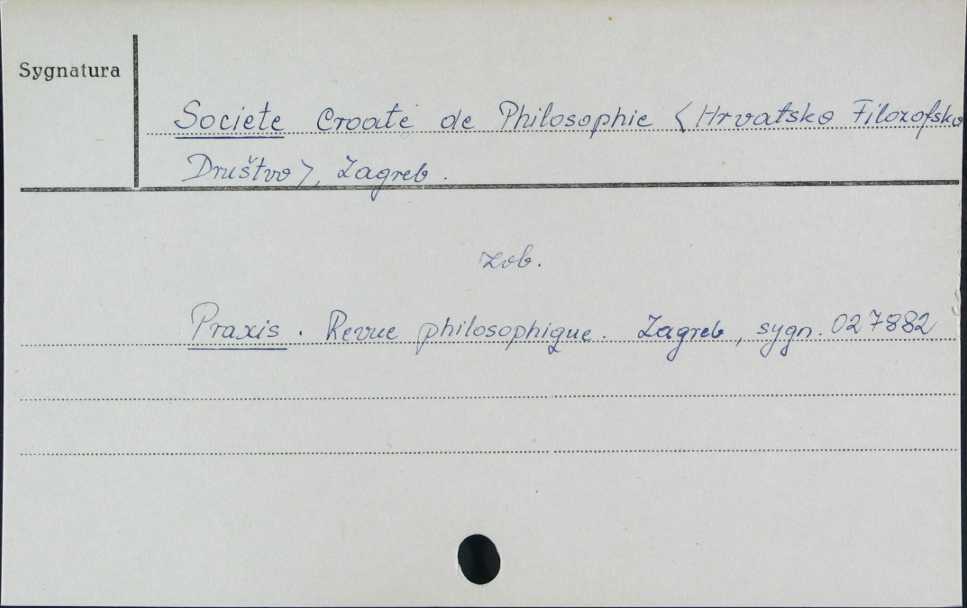 Sygnatura
Societe Croate de Philosophie <Hrvatsko Filozofsko
Društvo>, Zagreb.
zob.
Praxis. Revue philosophique. Zagreb, sygn. 027882